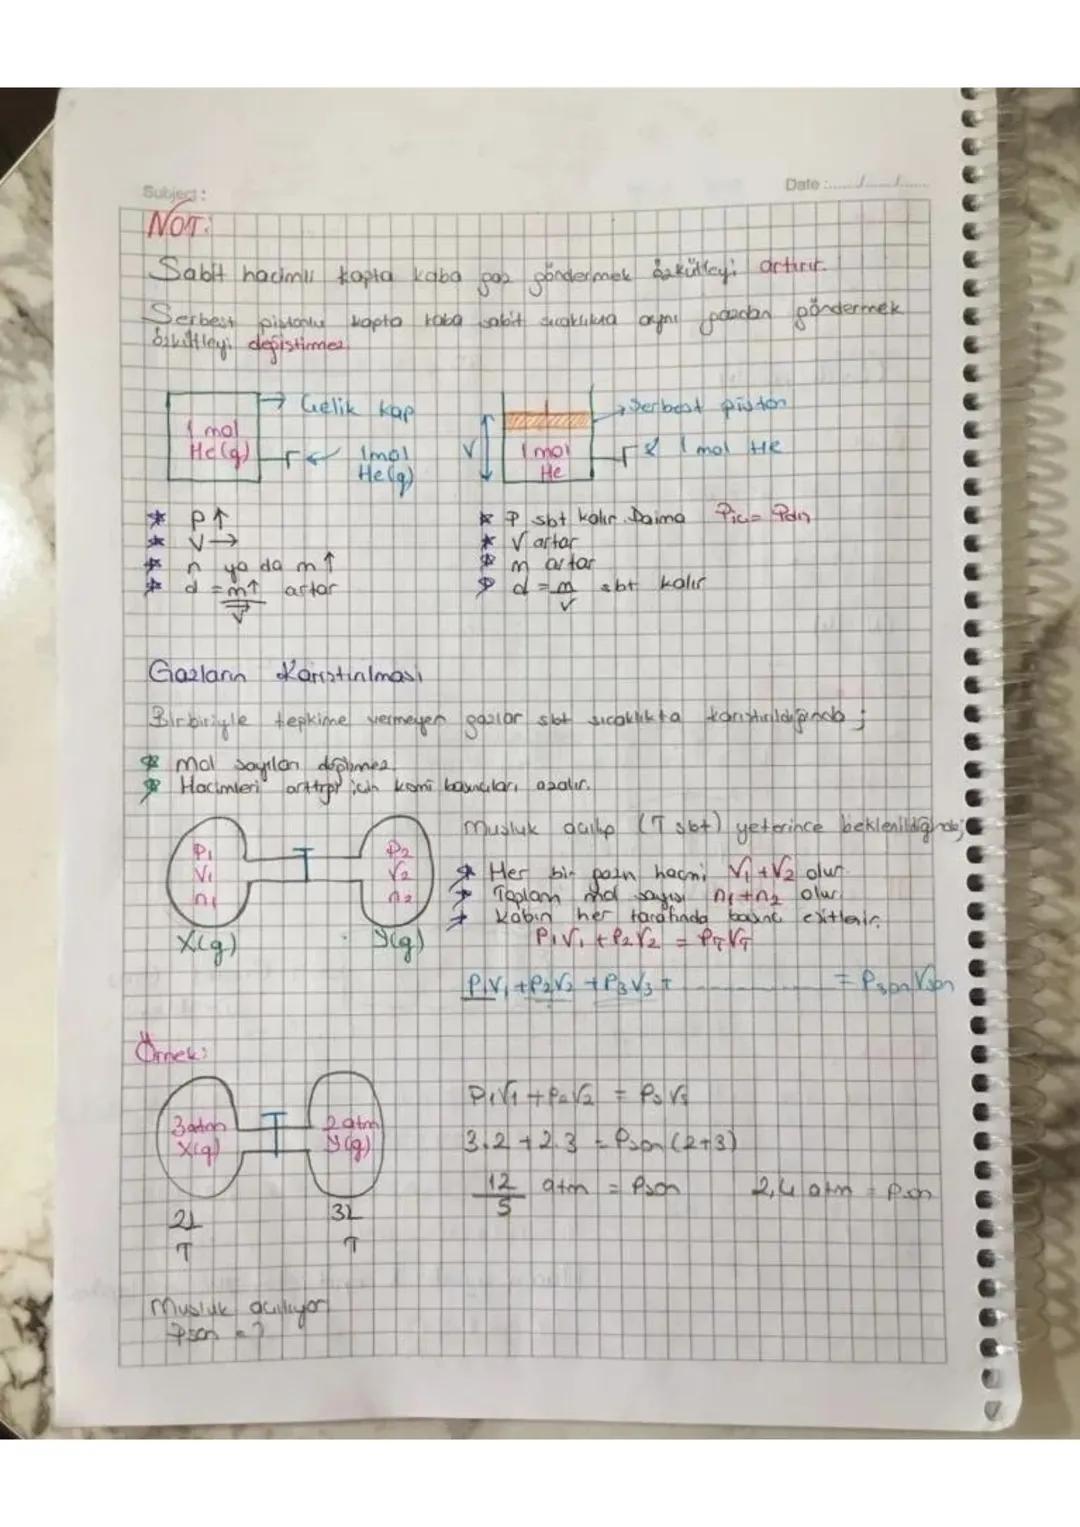 Subject:
Date :....../....../......
NOT:
Sabit hacimli kapta kaba gaz göndermek özkütleyi artırır.
Serbest pistonlu kapta kaba sabit sıcaklıkta aynı gazdan göndermek
özkütleyi değiştirmez.
Çelik kap
1 mol
He(g)
1mol
He(g)
Serbest piston
V
1 mol
He
1 mol He
P↑
V→
n ya da m↑
d = m↑ artar
V
P sbt kalır. Daima Piç = Pdış
V artar
m artar
d = m sbt kalır
V
Gazların Karıştırılması
Birbiriyle tepkime vermeyen gazlar sbt sıcaklıkta karıştırıldığında ;
Mol sayıları değişmez
Hacimleri arttığı için kısmi basınçları azalır.
P1
V1
n1
X(g)
P2
V2
n2
Y(g)
Musluk açılıp (T sbt) yeterince beklenildiğinde;
Her bir gazın hacmi V1+V2 olur.
Toplam mol sayısı n1+n2 olur.
Kabın her tarafında basınç eşitlenir.
P1V1 + P2V2 = PTVT
P1V1 + P2V2 + P3V3 + = Pson Vson
Örnek:
3 atm
X(g)
2 atm
Y(g)
2L
T
3L
T
P1V1 + P2V2 = PsVs
3.2 + 2.3 = Pson (2+3)
12 atm = Pson 2,4 atm = Pson
5
Musluk açılıyor
Pson = ?